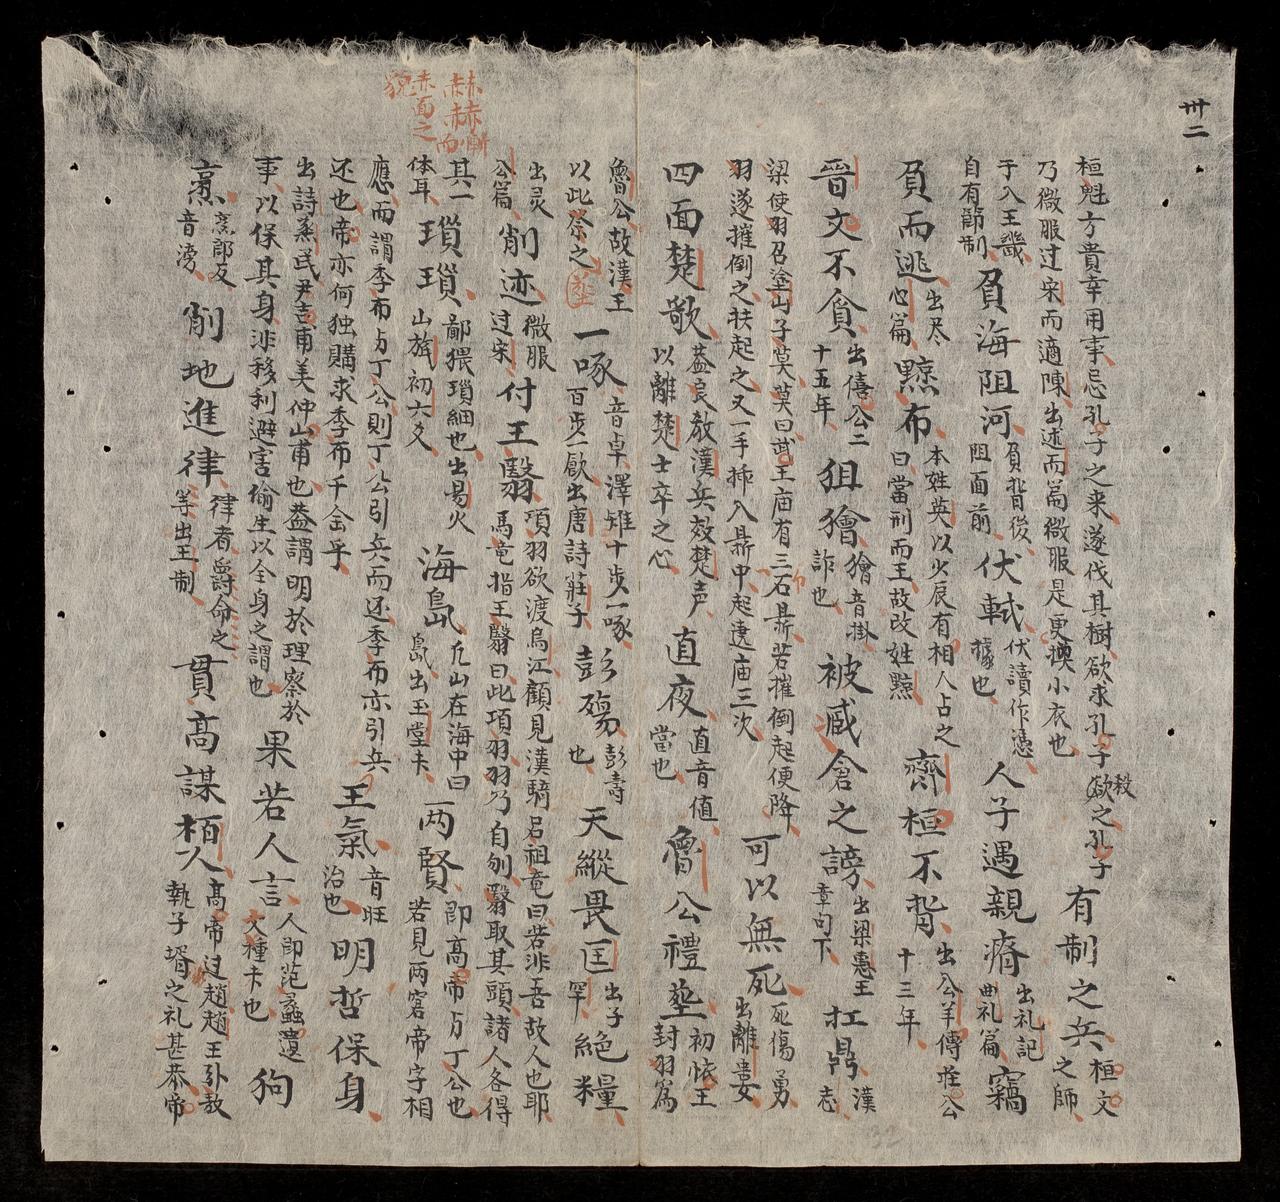 卅二
桓魁方貴幸用事忌孔子之来遂伐其樹欲求孔子欲殺之孔子
乃微服过宋而適陳出述而篇微服是更換小衣也
有制之兵
桓文
之師
于入王畿
自有節制
負海阻河
負背後
阻面前
伏軾
伏讀作憑
據也
人子遇親癠
出礼記
曲礼篇
竊
負而逃
出尽
心篇
黥布
本姓英以火辰有相人占之
曰當刑而王故改姓黥
齊桓不背
出公羊傳莊公
十三年
晉文不貪
出僖公二
十五年
狙獪
獪音掛
詐也
被臧倉之謗
出梁惠王
章句下
扛鼎
漢
志
梁使羽召塗山子莫莫曰武王庙有三石鼎若摧倒起便降
羽遂摧倒之扶起之又一手揷入鼎中起遶庙三次
可以無死
死傷勇
出離婁
四面楚歌
益良教漢兵效楚声
以離楚士卒之心
直夜
直音值
當也
魯公禮塟
初怀王
封羽爲
魯公故漢王
以此祭之
塟
一啄
音卓澤雉十步一啄
百步一飲出唐詩莊子
彭殤
彭壽
也
天縱畏匡
出子
罕
絕糧
出灵
公篇
削迹
微服
过宋
付王翳
項羽欲渡烏江顧見漢騎吕祖竜曰若非吾故人也耶
馬竜指王翳曰此項羽羽乃自刎翳取其頭諸人各得
其一
体耳
瑣瑣
鄙猥瑣細也出易火
山旅初六爻
海島
在山在海中曰
島出玉堂卡
两賢
即高帝与丁公也
若見两窘帝字相
應而謂季布与丁公則丁公引兵而还季布亦引兵
还也帝亦何独購求季布千金乎
王氣
音旺
治也
明哲保身
出詩烝民尹吉甫美仲山甫也益謂明於理察於
事以保其身非移利避害偷生以全身之謂也
果若人言
人即范蠡遺
文種卡也
狗
烹
烹郎反
音滂
削地進律
律者爵命之
等出王制
貫高謀栢人
高帝过趙趙王引敖
執子壻之礼甚恭帝
赫赫
赤面之
貌